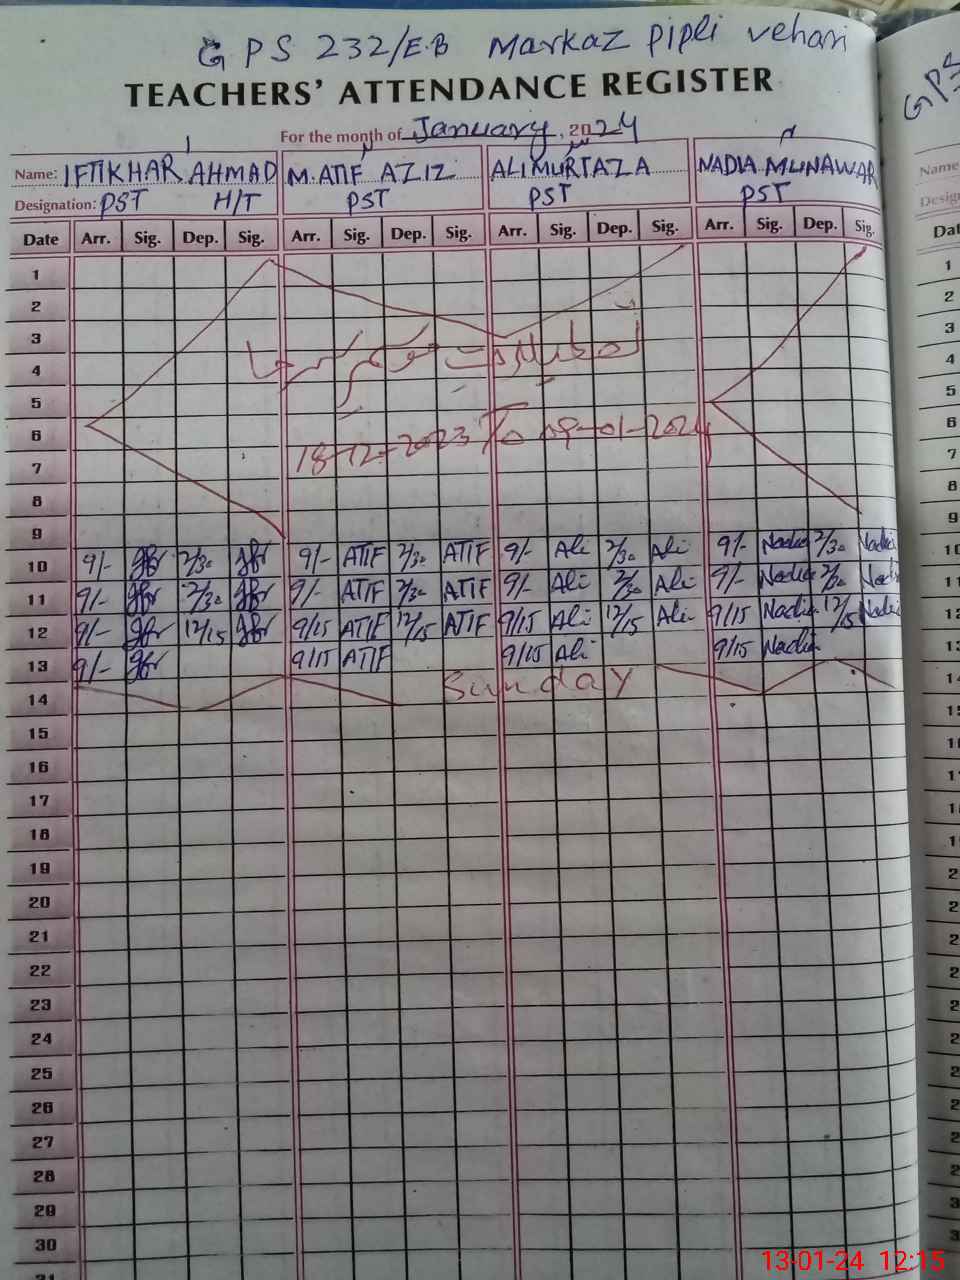 G P S 232/E.B Markaz pipli vehari
TEACHERS' ATTENDANCE REGISTER
For the month of January, 2024
Name: IFTIKHAR AHMAD M. ATIF AZIZ ALI MURTAZA NADIA MUNAWAR
Designation: PST H/T PST PST PST
Date Arr. Sig. Dep. Sig. Arr. Sig. Dep. Sig. Arr. Sig. Dep. Sig. Arr. Sig. Dep. Sig.
1
2
3
4
تعطیلات موسم سرما
5
6
18-12-2023 To 09-01-2024
7
8
9
10 9/- 2/30 9/- ATIF 2/30 ATIF 9/- Ali 2/30 Ali 9/- Nadia 2/30 Nadia
11 9/- 2/30 9/- ATIF 2/30 ATIF 9/- Ali 2/30 Ali 9/- Nadia 2/30 Nadia
12 9/- 12/15 9/15 ATIF 12/15 ATIF 9/15 Ali 12/15 Ali 9/15 Nadia 12/15 Nadia
13 9/- 9/15 ATIF 9/15 Ali 9/15 Nadia
14 Sunday
15
16
17
18
19
20
21
22
23
24
25
26
27
28
29
30
31
GPS
Name
Desig
Dat
1
2
3
4
5
6
7
8
9
10
11
12
13
14
13-01-24 12:15